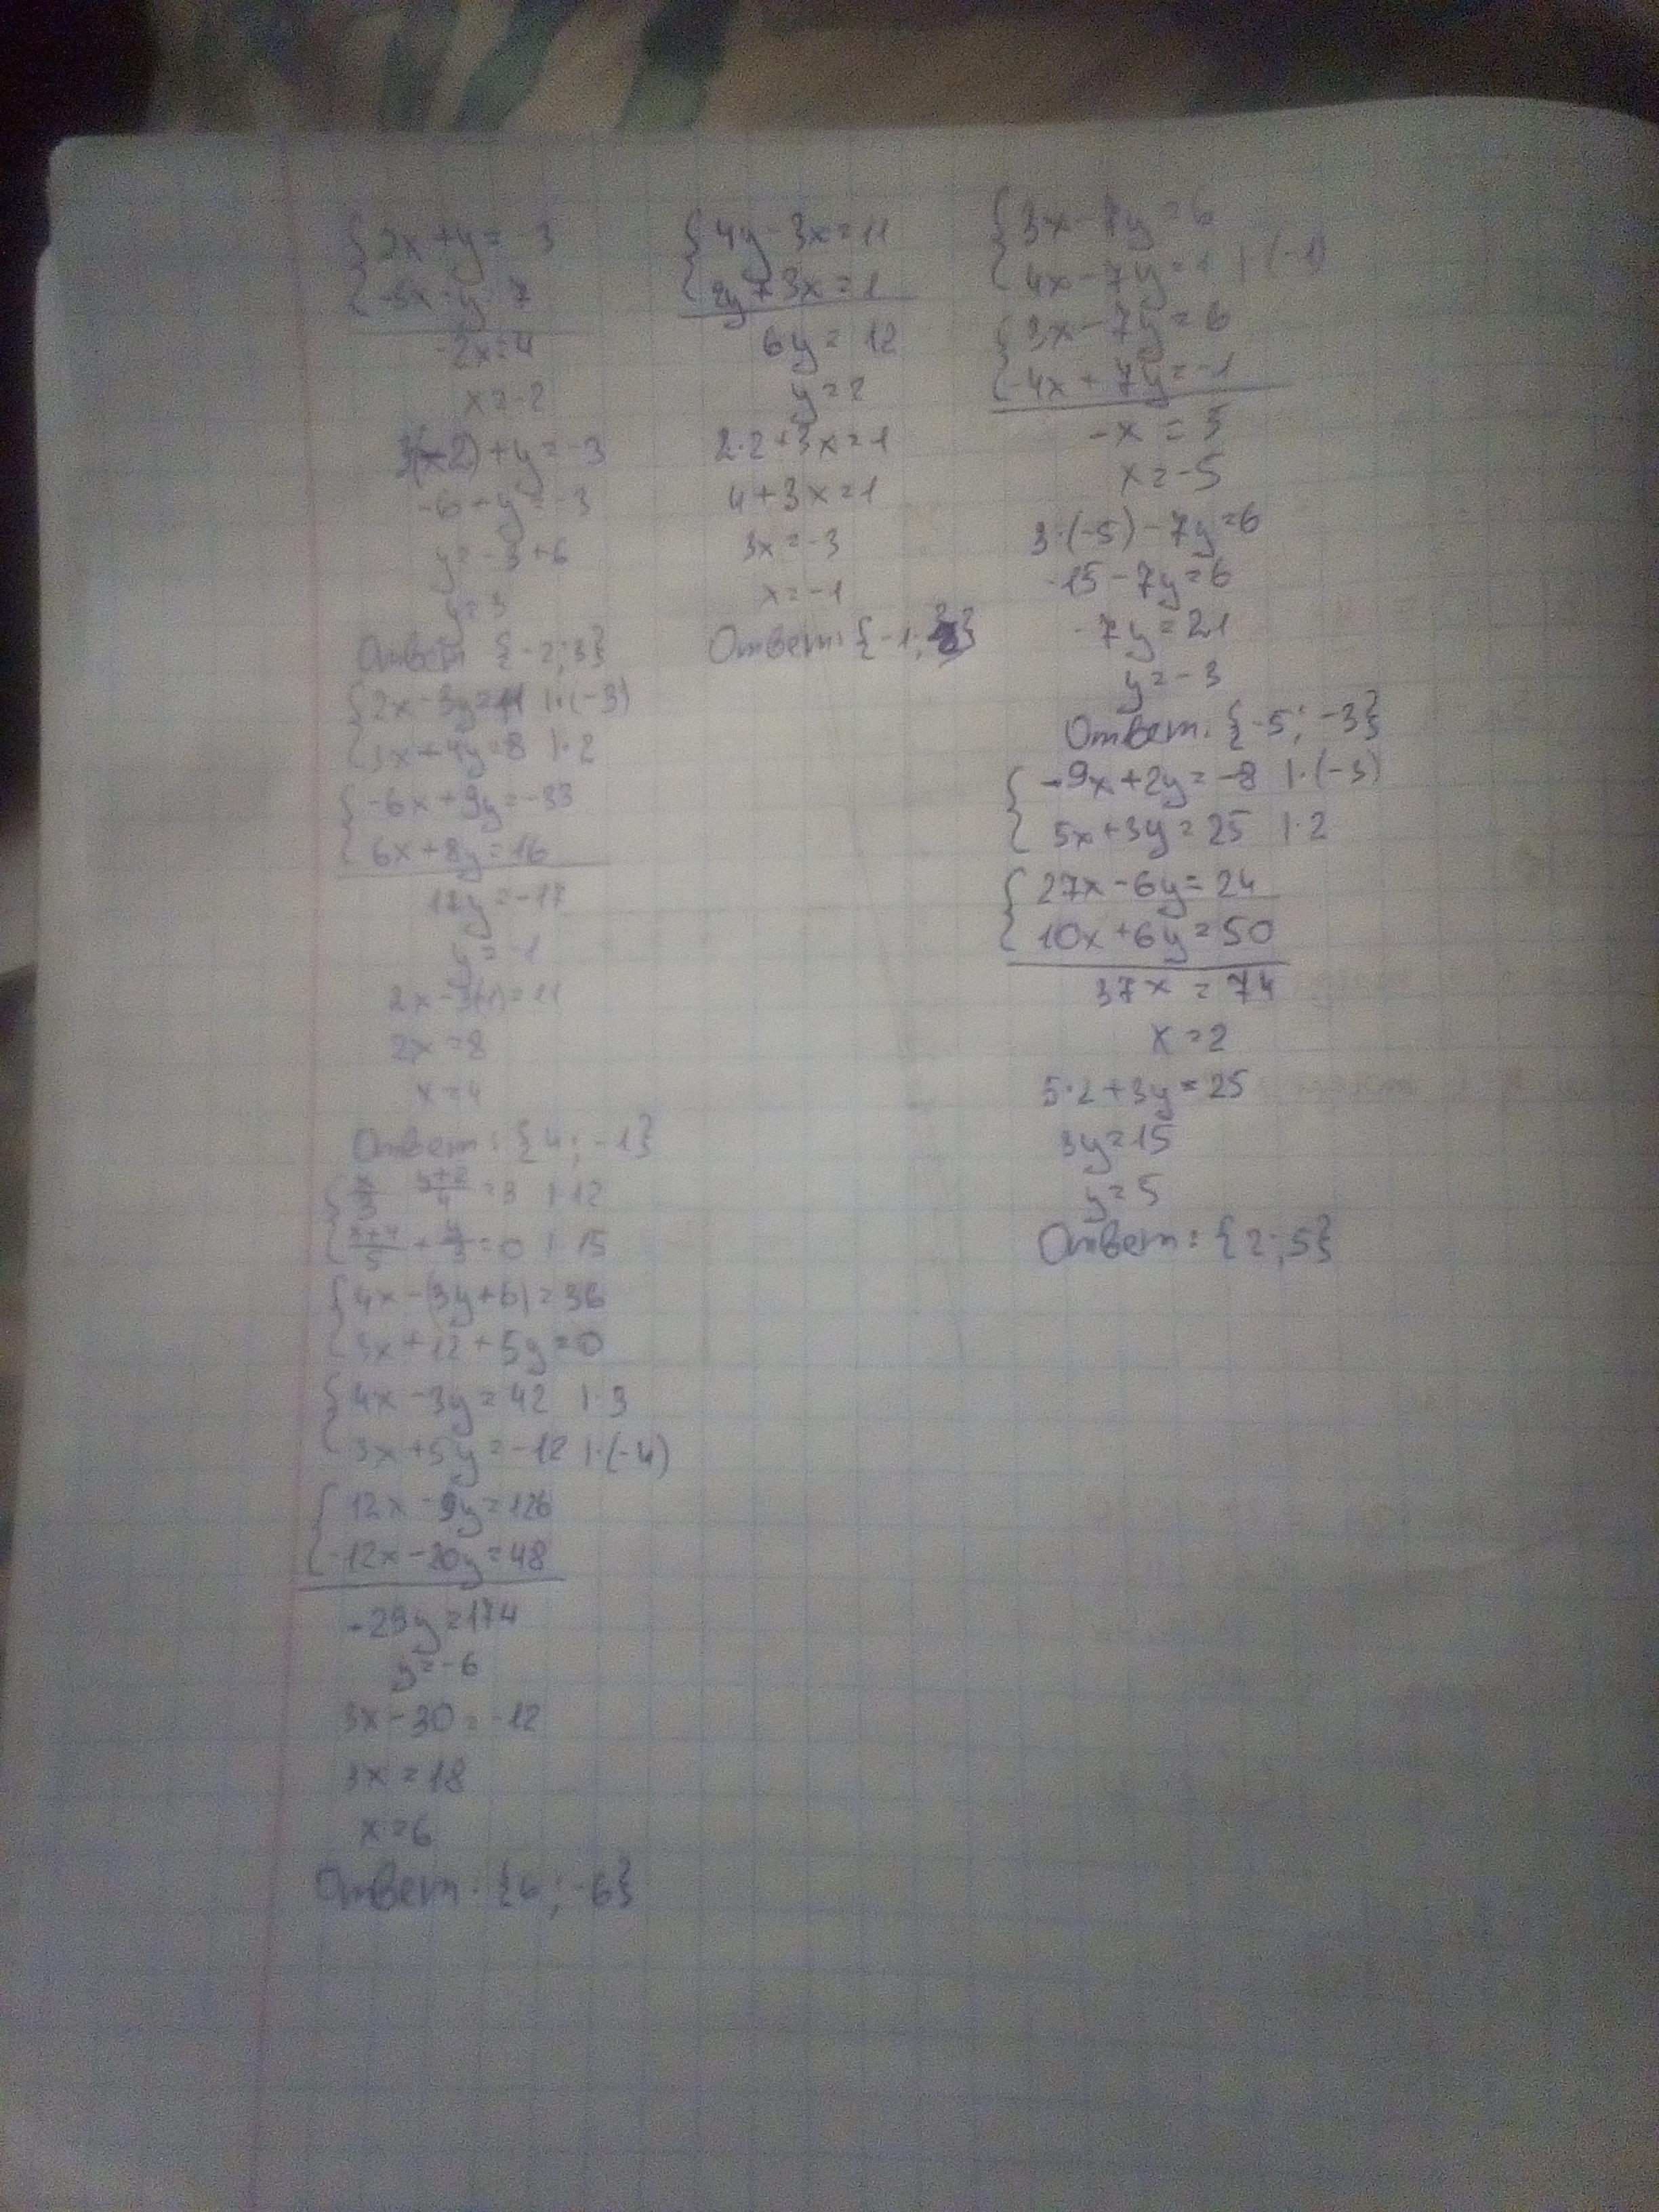 2x+y=-3
-5x-y=7
-2x=4
x=-2
3(-2)+y=-3
-6+y=-3
y=-3+6
y=3
Ответ {-2;3}
2x-3y=11 |·(-3)
3x+4y=8 |·2
-6x+9y=-33
6x+8y=16
17y=-17
y=-1
2x-3(-1)=11
2x=8
x=4
Ответ: {4;-1}
x/3 y+2/4 =3 |·12
x+4/5 + y/3 =0 |·15
4x-(3y+6)=36
3x+12+5y=0
4x-3y=42 |·3
3x+5y=-12 |·(-4)
12x-9y=126
-12x-20y=48
-29y=174
y=-6
3x-30=-12
3x=18
x=6
Ответ: {6;-6}
4y-3x=11
2y+3x=1
6y=12
y=2
2·2+3x=1
4+3x=1
3x=-3
x=-1
Ответ: {-1;
3x-7y=6
4x-7y=1 |·(-1)
3x-7y=6
-4x+7y=-1
-x=5
x=-5
3·(-5)-7y=6
-15-7y=6
-7y=21
y=-3
Ответ: {-5;-3}
-9x+2y=-8 |·(-3)
5x+3y=25 |·2
27x-6y=24
10x+6y=50
37x=74
x=2
5·2+3y=25
3y=15
y=5
Ответ: {2;5}